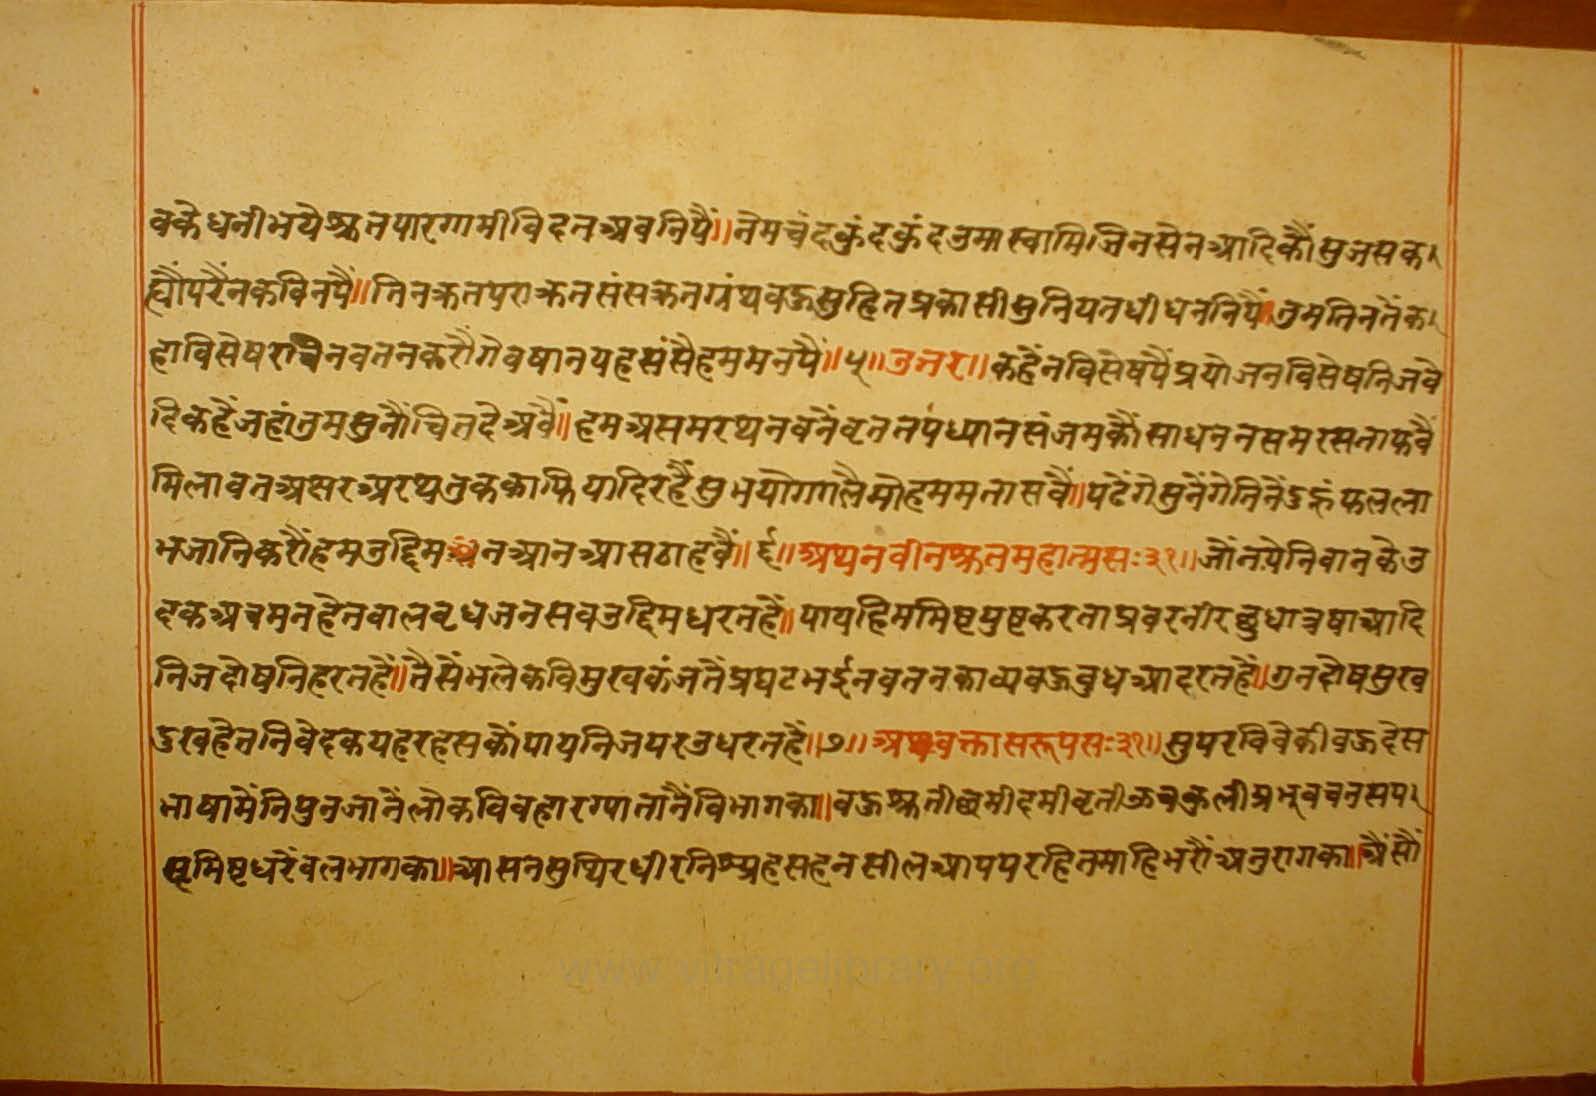 वकेधनीभयेश्रुतपारगामीविदनअवनिपैं॥नेमचंदकुंदकुंदउमास्वामिजिनसेनआदिकौंसुजसका
ह्यौंपरैंनकविनपैं॥तिनक्रतपराक्रतसंसक्रतग्रंथवऊसुहितप्रकासीसुनियतधीधननिपैं॥तुमतिनतेंका
हाविसेषराचेनवतनकरौगेवषानयहसंसैहममनपैं॥५॥उतर॥कहैंनविसेषपैंप्रयोजनविसेषनिजवे
दिकहैंजहांतुमसुनौंचितदेअवैं॥हमअसमरथनवनेंवृततपध्यानसंजमकौंसाधननसमरसताफवैं
मिलावतअसरअरथतुककाफियादिरहैंसुभयोगगलैमोहममतासवैं॥पढेंगेसुनेंगेतिनेंऊफलला
भजानिकरौंहमउद्दिमनआनआसठाहवैं॥६॥अथनवीनश्रुतमहात्मसः३१॥जौंनयेनिवानकेउ
दकअचमनहेतवालवृधजनसवउद्दिमधरतहें॥पायहिममिष्टपुष्टकरताप्रवरनीरछुधात्रषाआदि
निजदोषनिहरतहें॥तैसेंभलेकविमुखकंजतेंप्रघटभईनवतनकाव्यवऊवुधआदरतहें॥गुनदोषसुख
दुखहेतनिवेदकयहरहसकौंपायनिजपरउधरतहें॥७॥अथवक्तासरूपसः३१॥सुपरविवेकीवऊदेस
भाषामेंनिपुनजानेंलोकविवहारग्यातानैंविभागका॥वऊश्रुतीछमीदमीवृतीऊचकुलीप्रभूवचनसपा
सूमिष्टधरेंवलभागका॥आसनसुथिरधीरनिश्प्रहसहनसीलआपपरहितमाहिभरौंअनुरागका॥अैंसौं
www.vitragelibrary.org